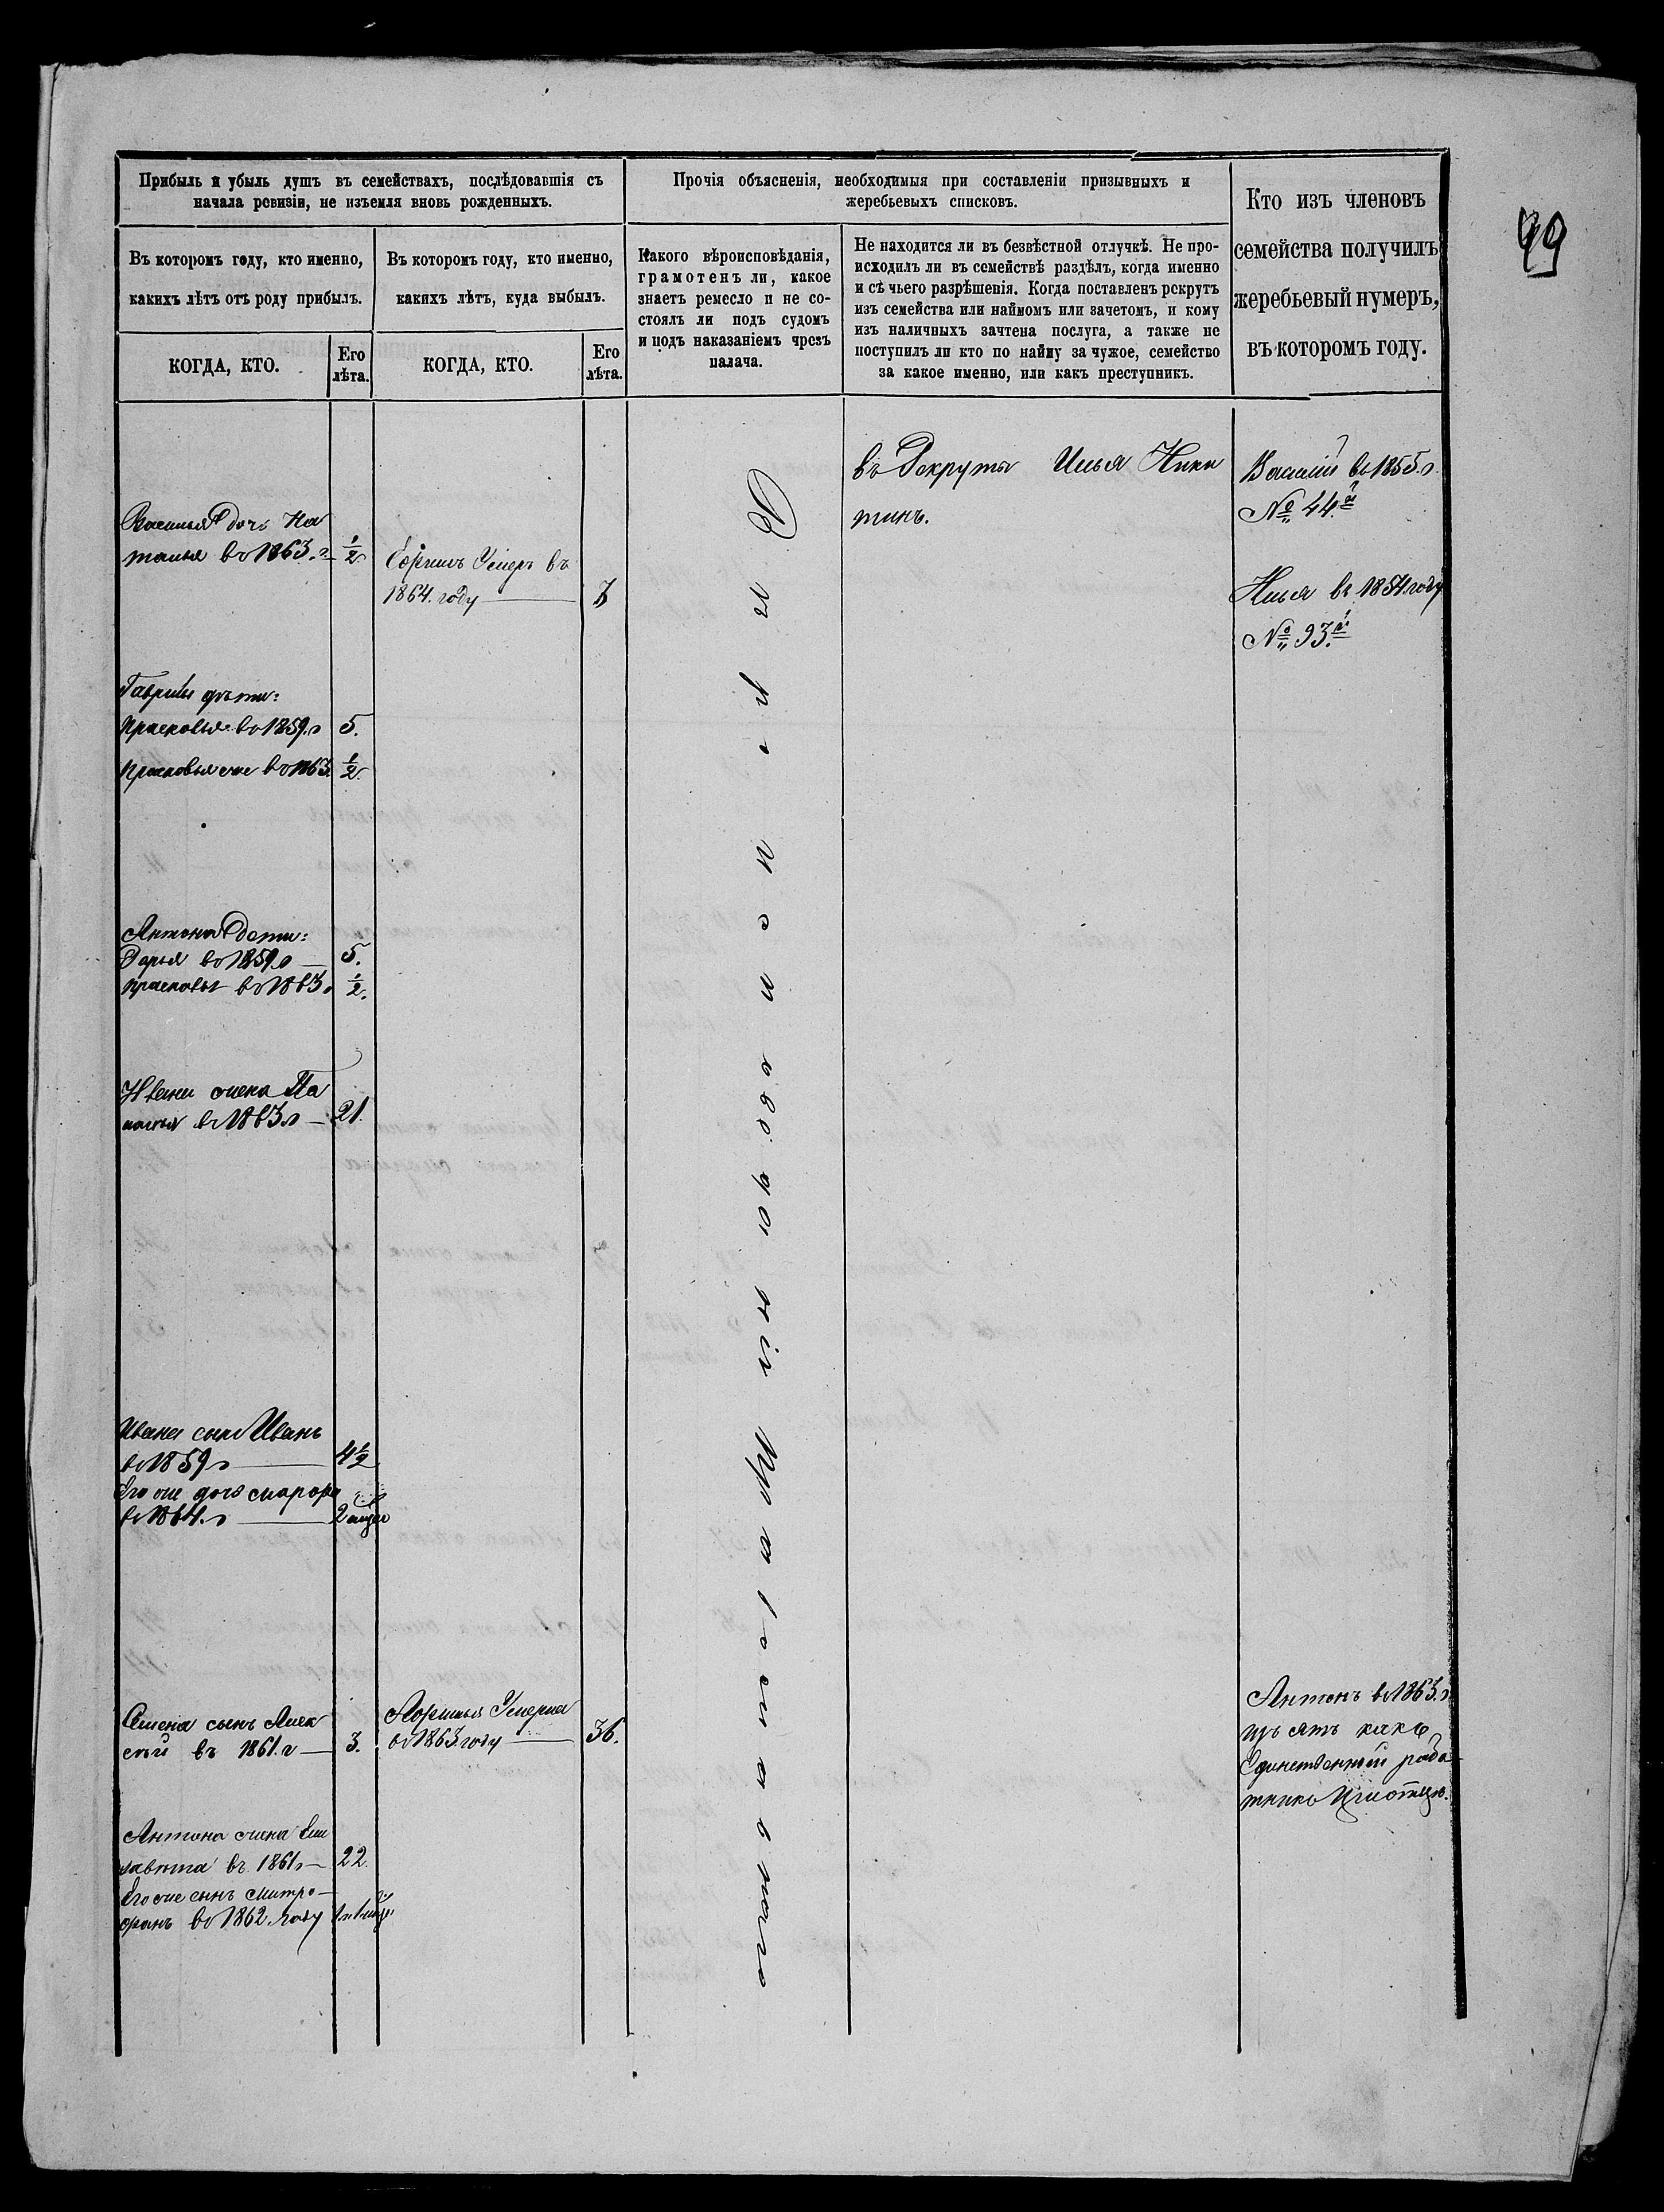 99
Прибыль и убыль душъ въ семействахъ, послѣдовавшія съ
начала ревизіи, не изъемля вновь рожденныхъ.
Въ которомъ году, кто именно,
какихъ лѣтъ отъ роду прибылъ.
КОГДА, КТО.
Его
лѣта.
Въ которомъ году, кто именно,
какихъ лѣтъ, куда выбылъ.
КОГДА, КТО.
Его
лѣта.
Прочія объясненія, необходимыя при составленіи призывныхъ и
жеребьевыхъ списковъ.
Какого вѣроисповѣданія,
грамотенъ ли, какое
знаетъ ремесло и не со-
стоялъ ли подъ судомъ
и подъ наказаніемъ чрезъ
палача.
Не находится ли въ безвѣстной отлучкѣ. Не про-
исходилъ ли въ семействѣ раздѣлъ, когда именно
и съ чьего разрѣшенія. Когда поставленъ рекрутъ
изъ семейства или наймомъ или зачетомъ, и кому
изъ наличныхъ зачтена послуга, а также не
поступилъ ли кто по найму за чужое, семейство
за какое именно, или какъ преступникъ.
Кто изъ членовъ
семейства получилъ
жеребьевый нумеръ,
въ которомъ году.
Василья дочь На
талья въ 1863. г. ½
Умеръ въ
1864. году
въ Рекруты Илья Ники
тинъ.
Василій въ 1855. г.
№ 44.й
Илья въ 1854 году
№ 93.й
Гаврилы дѣти:
Прасковья въ 1859. г 5.
Прасковья же въ 1863. ½
Антона дѣти:
Дарья въ 1859. г 5.
Прасковья въ 1863. ½
Ивана жена
въ 1863 г 21.
Ивана сынъ Иванъ
въ 1859 г 4½
Его же дочь
въ 1864. г 2
Семена сынъ Алек
сѣй въ 1861. г 3.
Умерла
въ 1863 году 36.
Антонъ въ 1863. г
изъятъ какъ
Единственный рабо
тникъ
Антона жена Ели
завета въ 1861 г 22.
Его же сынъ Митро-
фанъ въ 1862. году